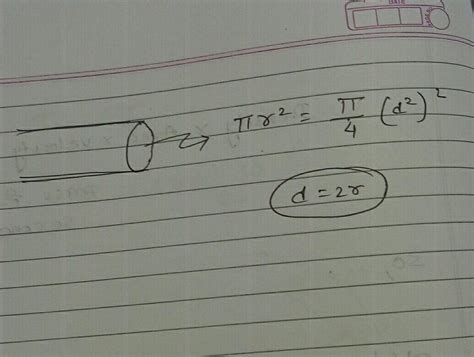 DATE
πr² = π/4 (d²)²
d = 2r